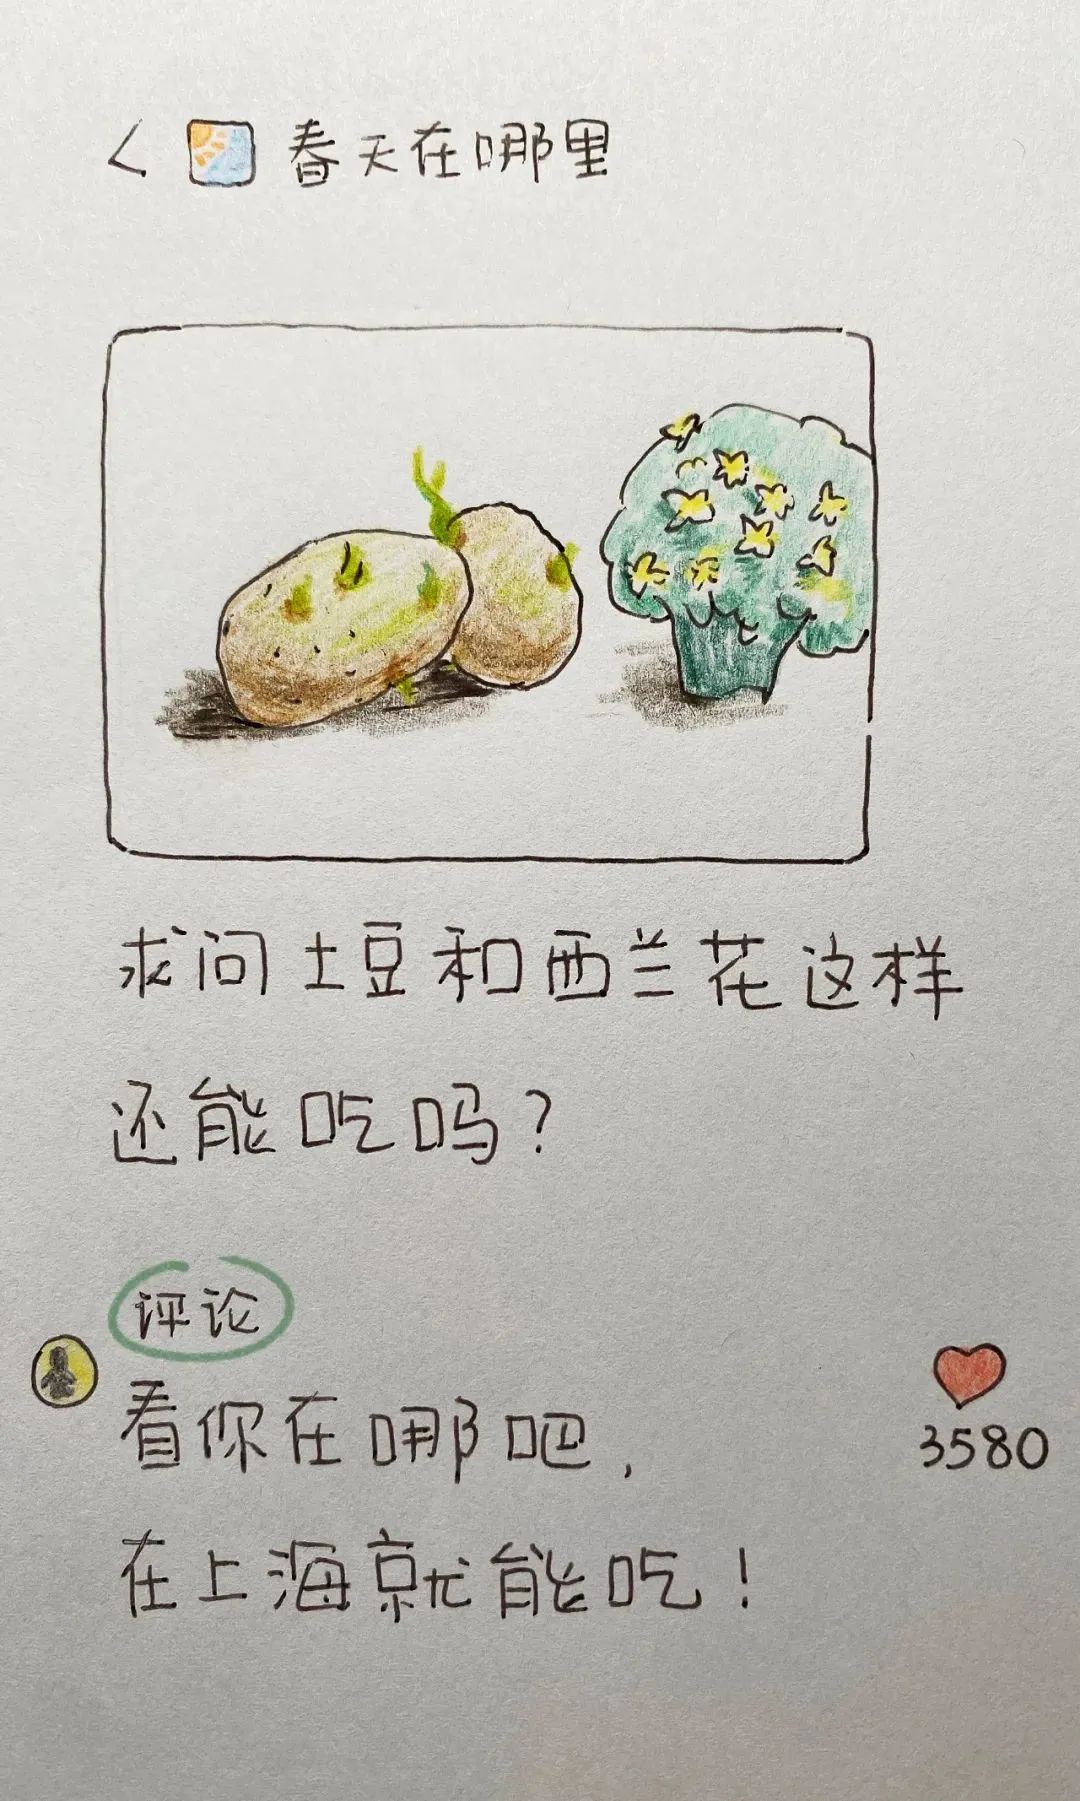 < 春天在哪里
求问土豆和西兰花这样
还能吃吗?
评论
看你在哪吧,
在上海就能吃!
3580